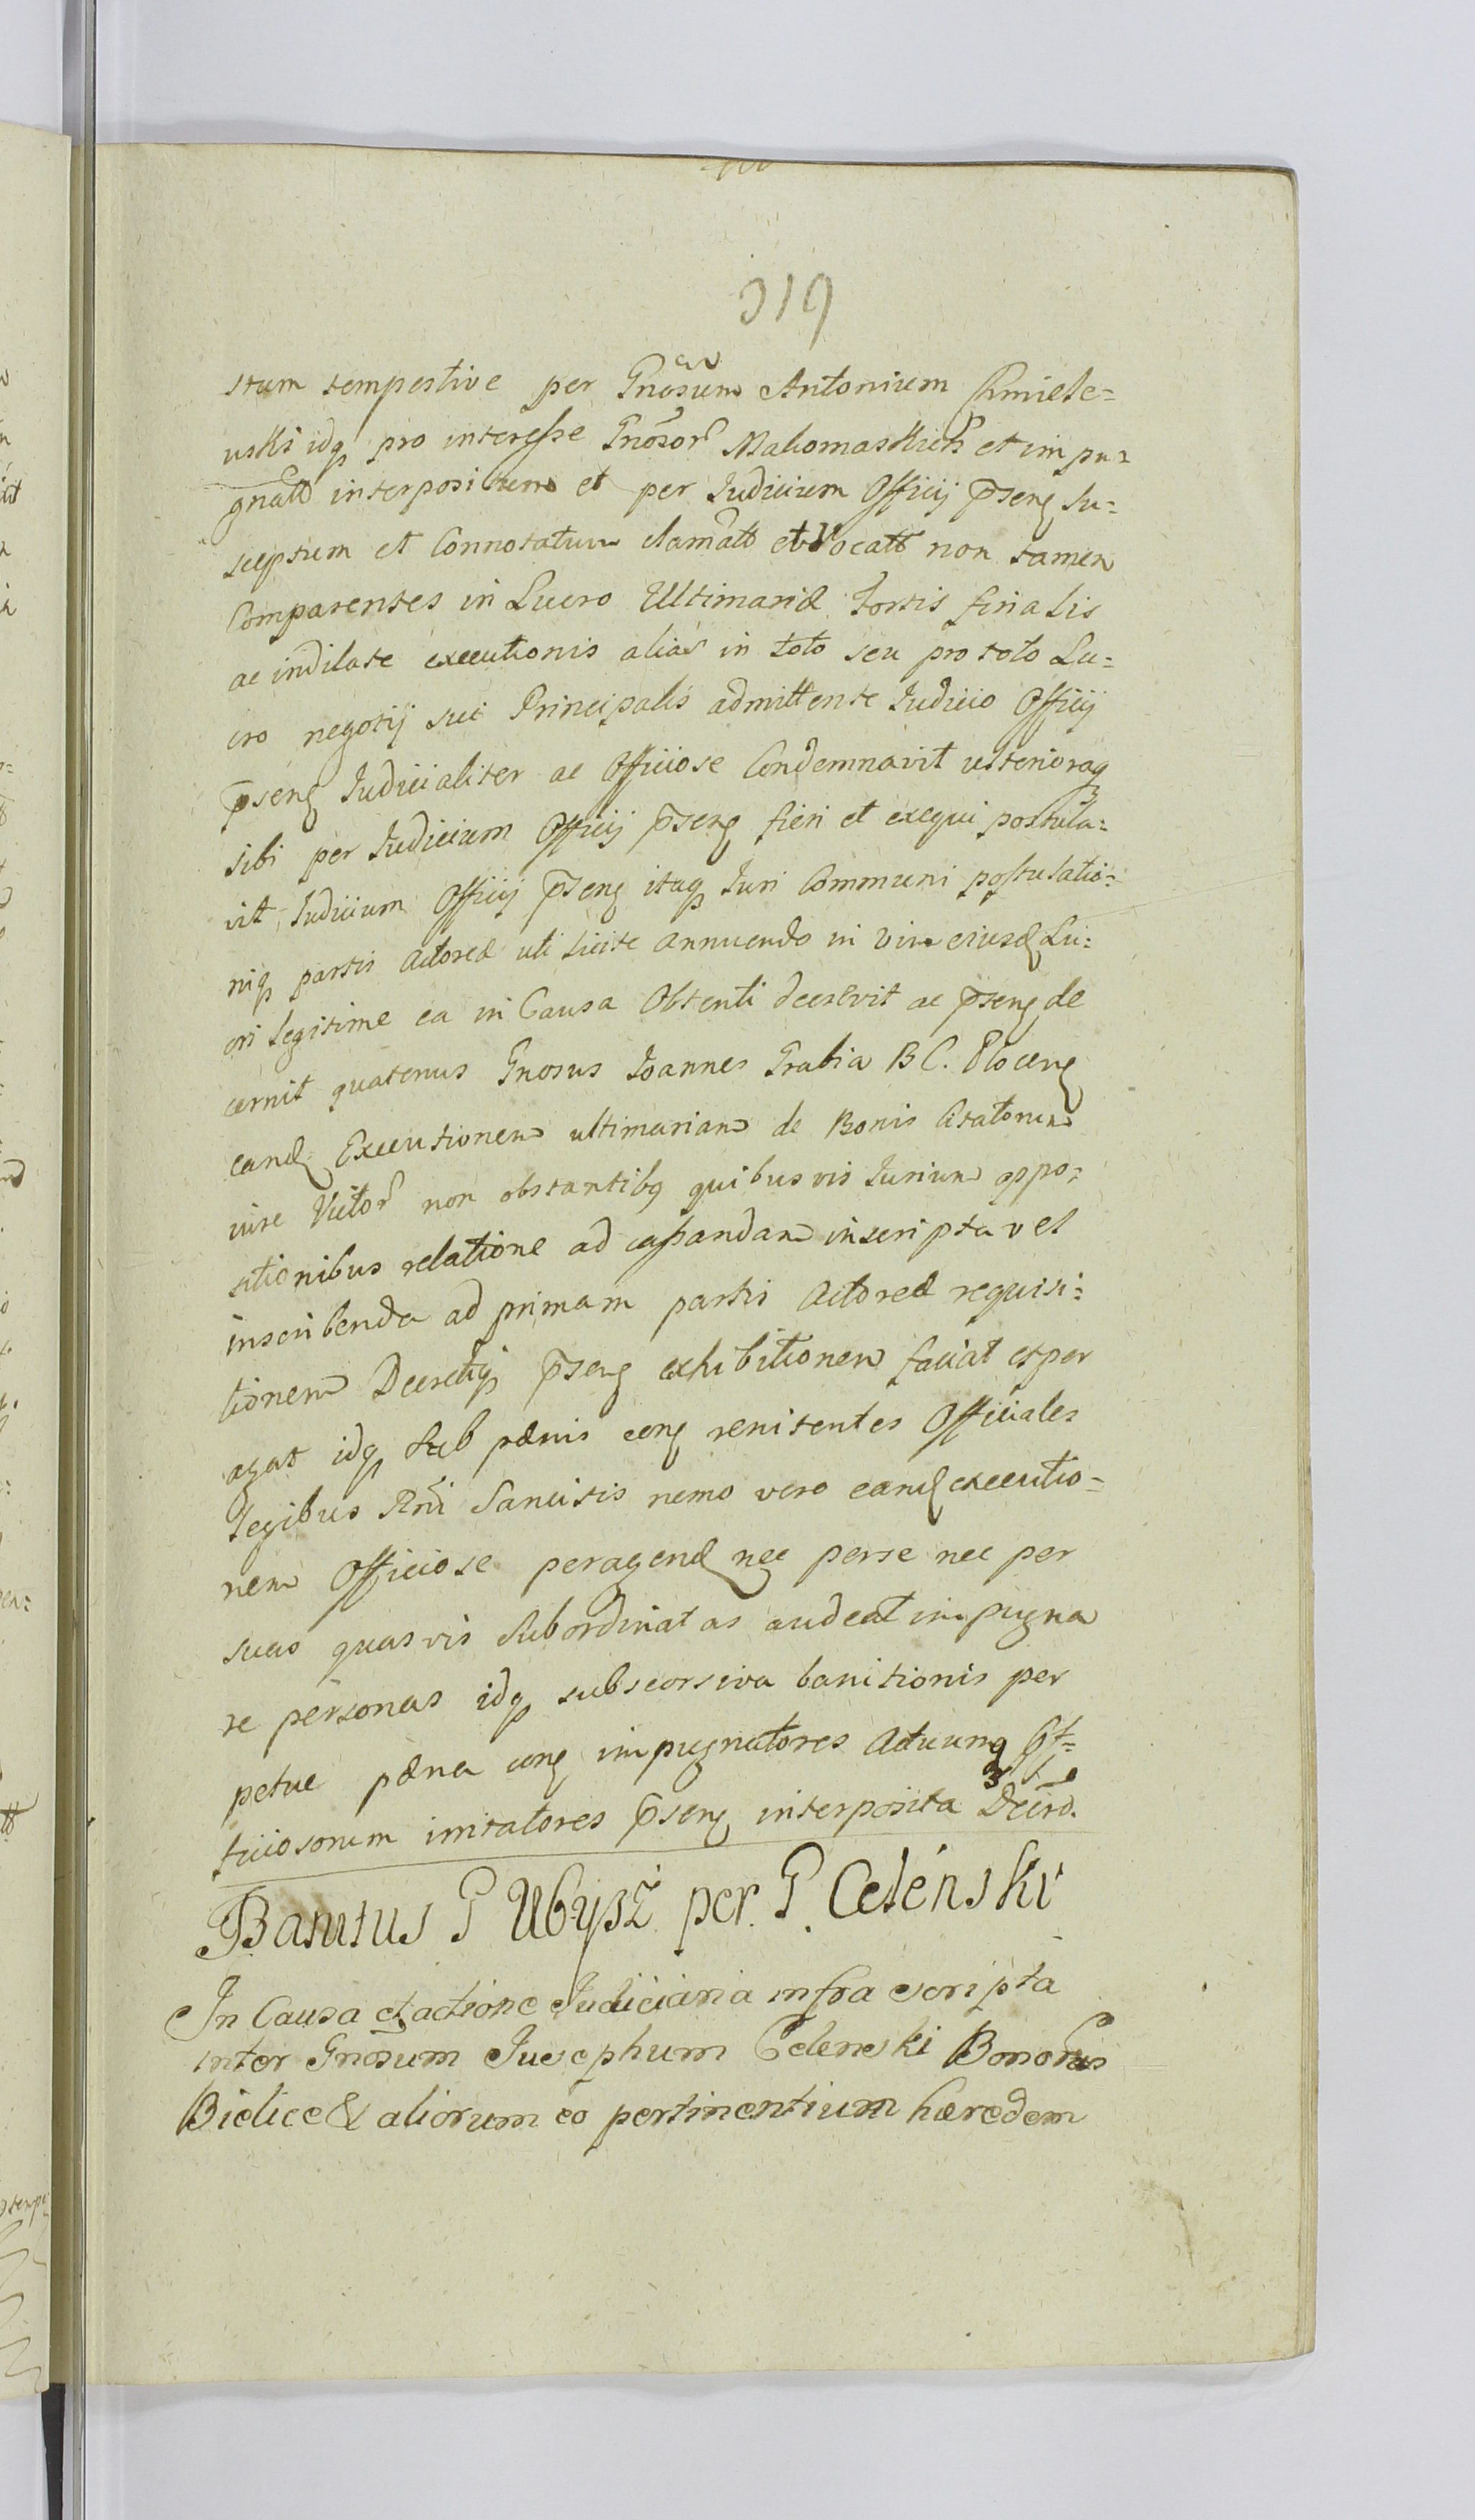 319
stum tempestive per Gnosum Antonium Chmiele=
wski idq pro interesse Gnosor Makomaskich et impu=
gnatt interpositum et per Judicium Officij pseng su=
sceptum et Connotatum clamatt et Vocatt non tamen
Comparentes in Lucro Ultimariæ sortis finalis
ac indilate executionis alias in toto seu pro toto Lu=
cro negotij sui Principalis admittente Judicio Officij
pseng Judicialiter ac Officiose Condemnavit ulterioraq
sibi per Judicium Officij pseng fieri et exequi postula=
vit, Judicium Officij pseng itaq Juri Communi postulatio=
niq partis Actoreæ uti licite annuendo in vim eiusd Lu=
cri legitime ea in Causa Obtenti decrevit ac pseng de
cernit quatenus Gnosus Joannes Grabia B C. Ploceng
eand Executionem ultimariam de Bonis Citatorum
iure Victor non obstantibq quibusvis Jurium oppo=
sitionibus relatione ad cassandam inscripta vel
inscribenda ad primam partis Actoreæ requisi=
tionem Decretiq pseng exhibitionem faciat et per
agat idq sub pænis cong renitentes Officiales
Legibus Rni Sancitis nemo vero eand executio=
nem Officiose peragend neq per se nec per
suas quasvis Subordinatas audeat impugna
re personas idq sub scorsiva banitionis per
petue pæna cong impugnatores Actuumq Of=
ficiosorum irritatores pseng interposita Decrō.
Banitus G Ubysz per G. Celénski
In Causa et actione Judiciaria infra scripta
inter Gnosum Jusephum Celenski Bonorus
Bielice & aliorum eo pertinentium hæredem